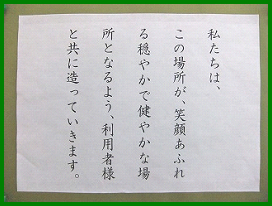 私たちは、
この場所が、笑顔あふれ
る穏やかで健やかな場
所となるよう、利用者様
と共に造っていきます。